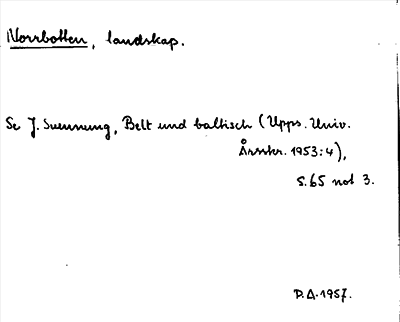 Norrbotten, landskap.
Se J. Svennung, Belt und baltisch (Upps. Univ.
Årsskr. 1953:4),
s. 65 not 3.
P.A. 1957.